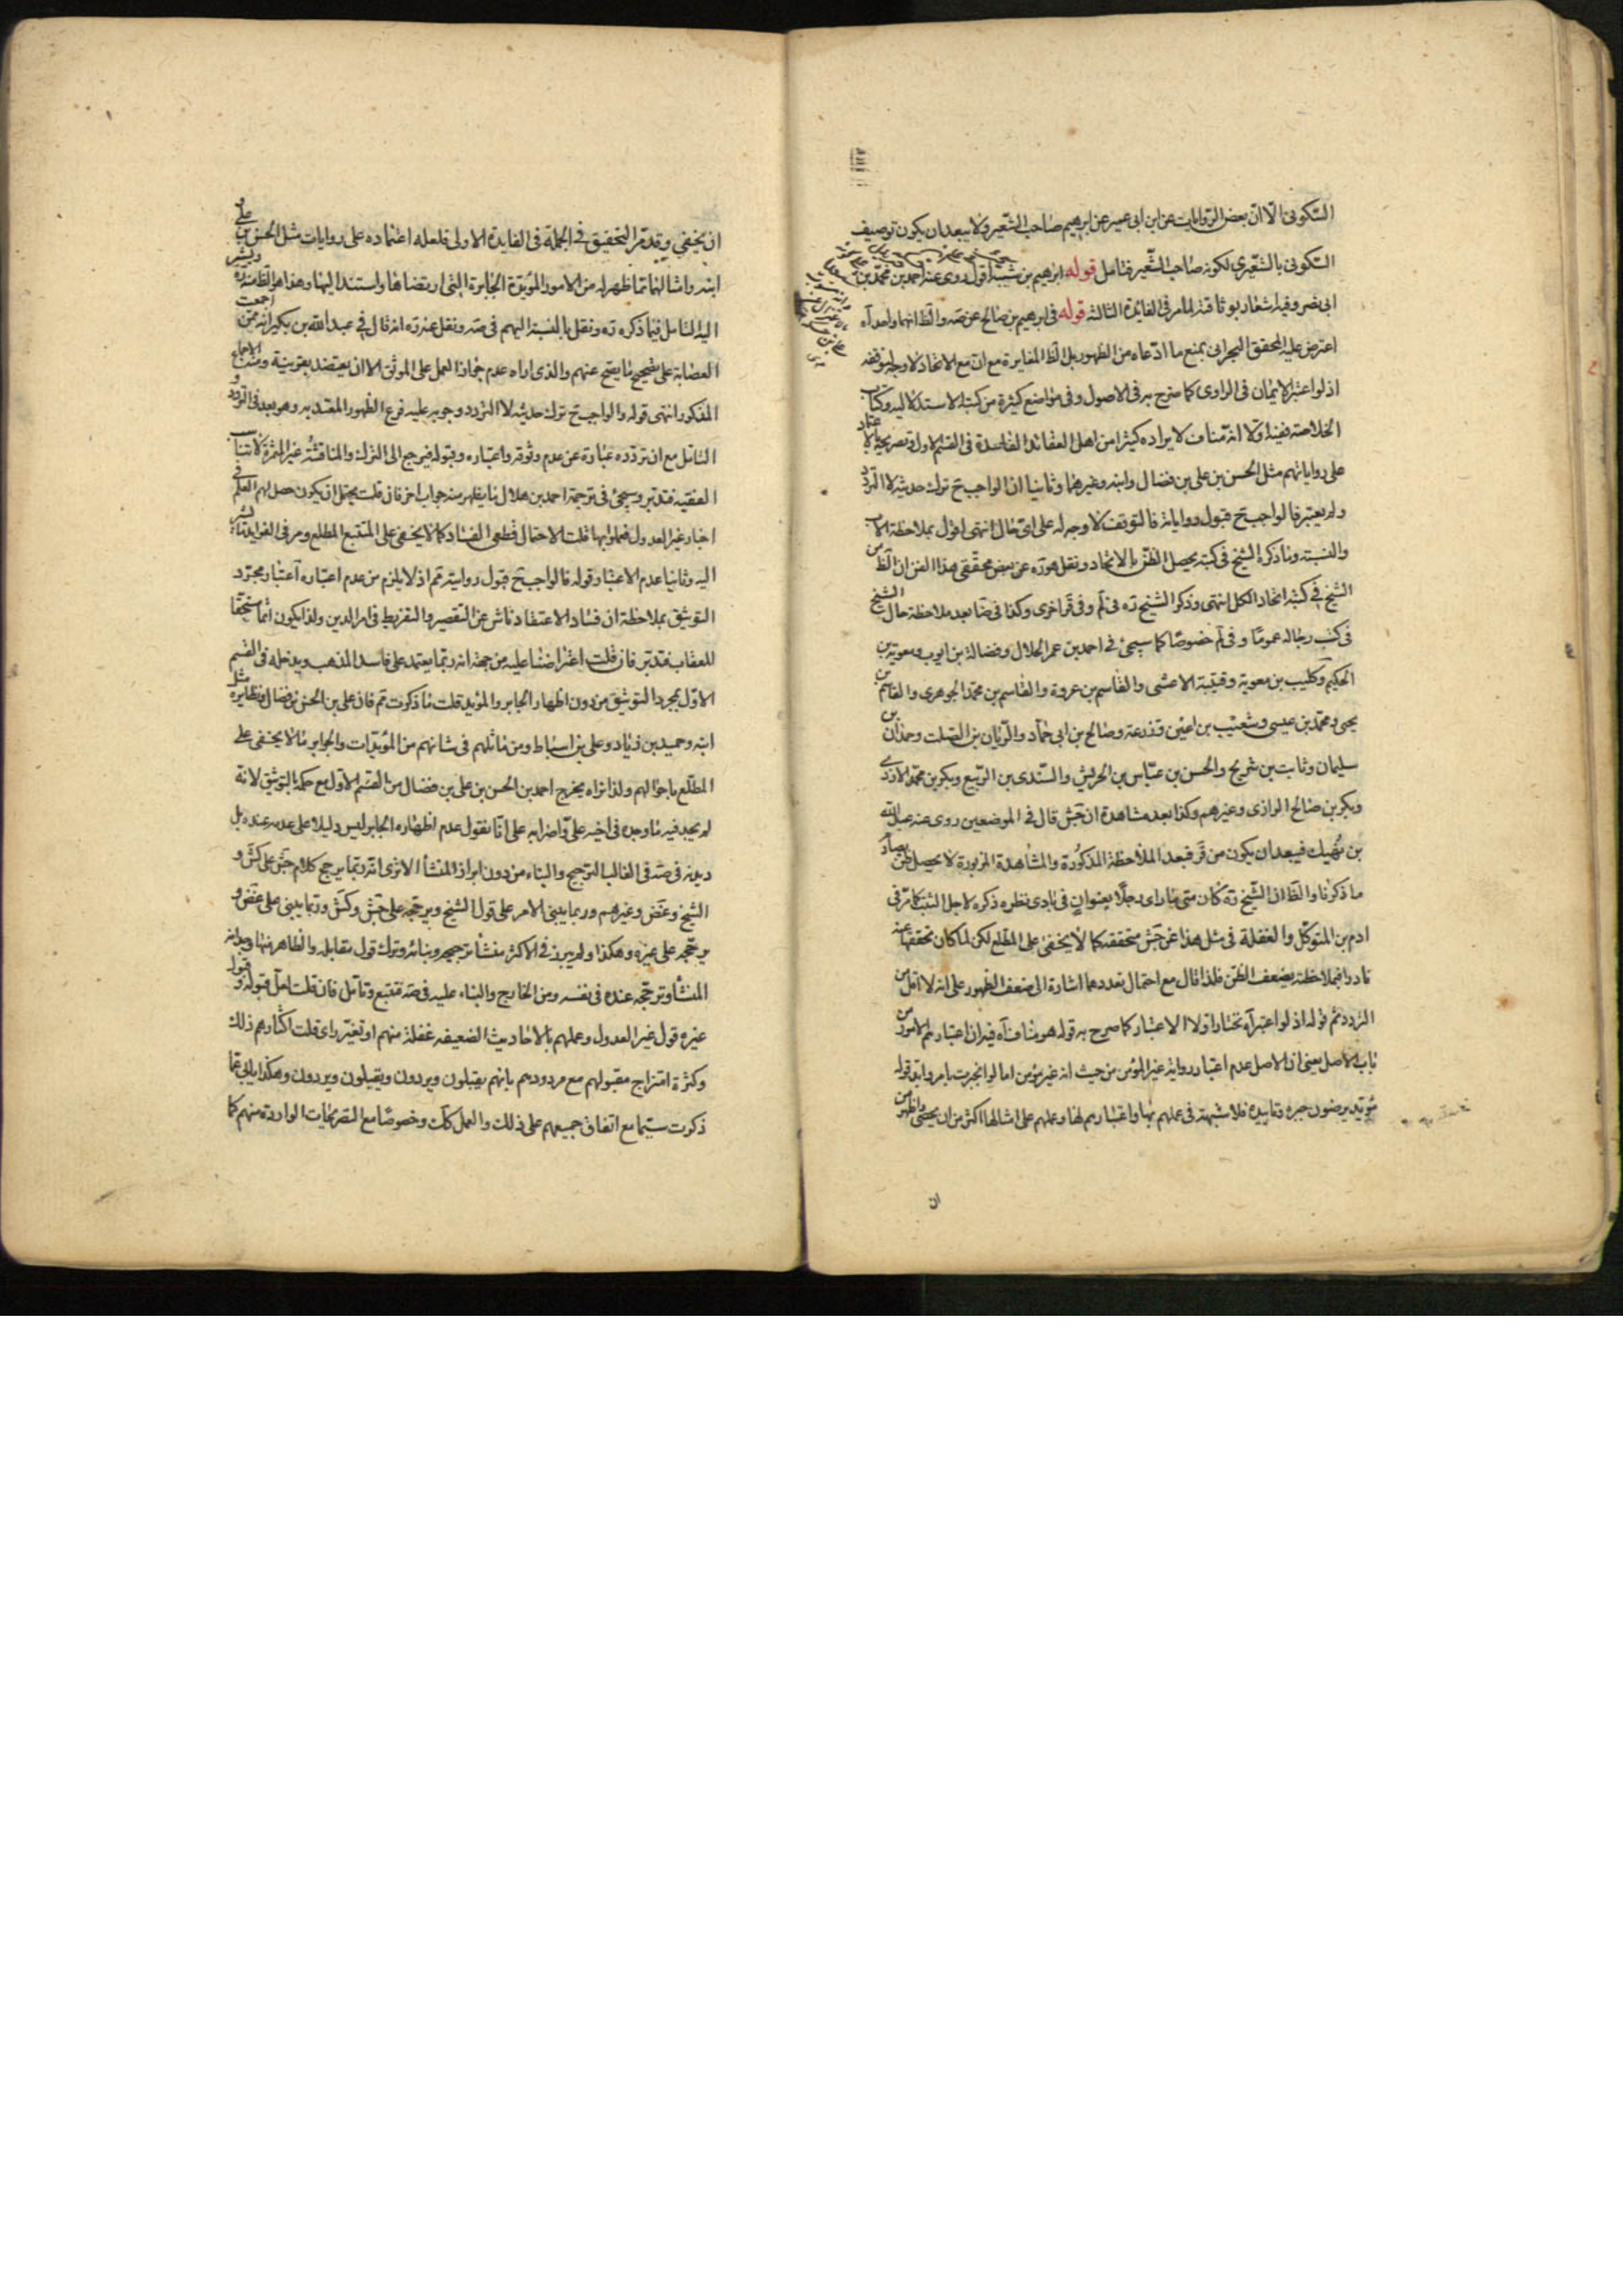 السكونى الّا انّ بعض الروايات عن ابن ابى عمير عن ابرهيم صاحب الشّعير ولا يبعد ان يكون توصيف
السكونى بالشعيرى لكونه صاحب الشّعير فتامل قوله ابرهيم بن شيبة اقول روى عنه احمد بن محمّد بن
ابى نصر وفيه اشعار بوثاقته لما مر فى الفايدة الثالثة قوله فى ابرهيم بن صالح عن ضه والظ انهما واحد آه
اعترض عليه المحقق البحرانى بمنع ما ادّعاه من الظهور بل الظ المغايرة مع ان مع الاتحاد لا وجه لتوقفه
اذ لو اعتبر الايمان فى الراوى كما صرّح به فى الاصول وفى مواضع كثيرة من كتبه الاستدلاليه وكتاب
الخلاصة ففيه اوّلا انه مناف لايراده كثيرا من اهل العقائد الفاسدة فى القسم الاول وتصريحه بالاعتماد
على رواياتهم مثل الحسن بن على بن فضال وابنه وغيرهما وثانيا ان الواجب ح ترك حديثه لا التردد
ولم يعتبر فالواجب ح قبول رواياته فالتوقف لا وجه له على اىّ حال انتهى اقول بملاحظة الاب
والنسبة وما ذكره الشيخ فى كتبه يحصل الظنّ بالاتحاد ونقل هو ره عن بعض محققى هذا الفن ان الظ من
الشيخ فى كتبه اتحاد الكل انتهى وذكر الشيخ ره فى لم وفى قر اخرى وكذا فى ضا بعد ملاحظة حال الشيخ
فى كتب رجاله عموما وفى لم خصوصا كما سيجئ فى احمد بن عمر الحلال وفضالة بن ايوب ومعوية بن
الحكيم وكليب بن معوية وقتيبة الاعشى والقاسم بن عروة والقاسم بن محمد الجوهرى والقاسم بن
يحيى ومحمّد بن عيسى وشعيب بن اعين وزرعة وصالح بن ابى حماد والرّيان بن الصلت وحمدان بن
سليمان وثابت بن شريح والحسن بن عبّاس بن الحريش والسندى بن الربيع وبكر بن محمّد الازدى
وبكر بن صالح الرازى وغيرهم وكذا بعد مشاهدة ان جش قال فى الموضعين روى عنه عبيد الله
بن نهيك فيبعد ان يكون من قر فبعد الملاحظة المذكورة والمشاهدة المزبورة لا يحصل ظن يصادم
ما ذكرنا والظ ان الشيخ ره كان متى ما راى رجلا بعنوان فى بادى نظره ذكره لاجل التثبت كما مرّ فى
ادم بن المتوكل والغفلة فى مثل هذا عن جش متحققه كما لا يخفى على المطلع لكن لما كان تحققها عنه
نادرا فبملاحظته يضعف الظنّ فلذا قال مع احتمال تعددهما اشارة الى ضعف الظهور على انه لا اقل من
التردد ثم قوله اذ لو اعتبر آه نختار اولا الاعتبار كما صرح به قوله هو مناف آه فيه ان اعتبارهم الامور من
باب الاصل يعنى ان الاصل عدم اعتبار رواية غير المؤمن من حيث انه غير مؤمن اما لو انجبرت بامر وايد قوله
مؤيد يرضون جبره وتاييده فلا شبهة فى عملهم بها واعتبارهم لها وعملهم على امثالها اكثر من ان يحصى واظهر من
ان
ان يخفى وقد مر التحقيق فى الجملة فى الفايدة الاولى فلعله اعتماده على روايات مثل الحسن بن على
ابنه وامثالهما مما ظهر له من الامور المؤيدة الجابرة التى ارتضاها واستند اليها وهذا هو الظ منه ره ويشير
اليه التامل فيما ذكره ره ونقل بالنسبة اليهم فى صه ونقل عنه ره انه قال فى عبد الله بن بكير انه ممن اجمعت
العصابة على تصحيح ما يصح عنهم والذى اراه عدم جواز العمل على الموثق الا ان يعتضد بقرينة ومنها الاجماع
المذكور انتهى قوله والواجب ح ترك حديثه لا التردد وجوبه عليه فرع الظهور المعتد به وهو بعد فى التردد و
التامل مع ان تردده عبارة عن عدم وثوقه واعتباره وقبوله فيرجع الى الترك والمناقشة غير المثمرة لا تناسب
الفقيه فتدبر وسيجئ فى ترجمة احمد بن هلال ما يظهر منه جواب اخر فان قلت يحتمل ان يكون حصل لهم العلم فى
اخبار غير العدول فعملوا بها قلت الاحتمال قطعى الفساد كما لا يخفى على المتتبع المطلع ومر فى الفوايد ما يشير
اليه وثانيا عدم الاعتبار قوله فالواجب ح قبول روايته قم اذ لا يلزم من عدم اعتباره اعتبار مجرّد
التوثيق بملاحظة ان فساد الاعتقاد ناش عن التقصير والتفريط فى امر الدين ولذا يكون اثما مستحقا
للعقاب فتدبر فان قلت اعتراضنا عليه من جهة انه ربما يعتمد على فاسد المذهب ويدخله فى القسم
الاوّل بمجرد التوثيق من دون اظهار الجابر والمؤيد قلت ما ذكرت قم فان على بن الحسن بن فضال ونظايره مثل
ابنه وحميد بن زياد وعلى بن اسباط ومن ماثلهم فى شانهم من المؤيدات والجوابر ما لا يخفى على
المطّلع باحوالهم ولذا تراه يخرج احمد بن الحسن بن على بن فضال من القسم الاول مع حكمه بالتوثيق لانه
لم يجد فيه ما وجده فى اخيه على واضرابه على انا نقول عدم اظهاره الجابر ليس دليلا على عدمه عنده بل
ديدنه فى صه فى الغالب الترجيح والبناء من دون ابراز المنشأ الا ترى انه ربما يرجح كلام جش على كش و
الشيخ وغض وغيرهم وربما يبنى الامر على قول الشيخ ويرجحه على جش وكش وربما يبنى على غض و
يرجّحه على غيره وهكذا ولم يبرز فى الاكثر منشأ ترجيحه وبنائه وترك قول مقابله والظاهر منها وجدانه
المنشأ وترجّحه عنده فى نفسه ومن الخارج والبناء عليه فى صه فتتبع وتامل فان قلت لعل قبوله و
غيره قول غير العدول وعملهم بالاحاديث الضعيفه غفلة منهم او تغير راى قلت اكثارهم ذلك
وكثرة امتزاج مقبولهم مع مردودهم بانهم يقبلون ويردون ويقبلون ويردون وهكذا يابى عما
ذكرت سيّما مع اتفاق جميعهم على ذلك والعمل كك وخصوصًا مع التصريحات الواردة منهم كما